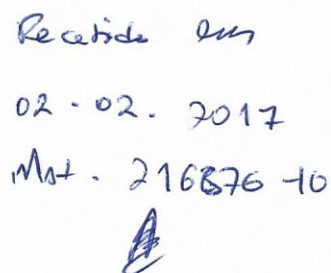 Recebido em
02.02.2017
Mat. 216876-10